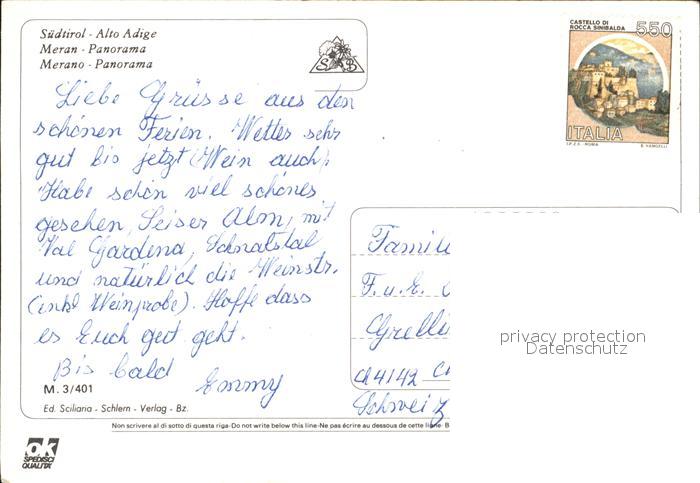 Südtirol - Alto Adige
Meran - Panorama
Merano - Panorama
S B
CASTELLO DI
ROCCA SINIBALDA
550
ITALIA
I.P.Z.S. - ROMA E. VANGELLI
Liebe Grüsse aus den
schönen Ferien. Wetter sehr
gut bis jetzt (Wein auch).
Habe schon viel schönes
gesehen, Seiser Alm, mit
Val Gardena, Schnalstal
und natürlich die Weinstr.
(inkl Weinprobe). Hoffe dass
es Euch gut geht.
Bis bald
Emmy
Famili
F. u. E.
Grelli
CH 4142
Schweiz
privacy protection
Datenschutz
M. 3/401
Ed. Sciliaria - Schlern - Verlag - Bz.
Non scrivere al di sotto di questa riga-Do not write below this line-Ne pas écrire au dessous de cette ligne- B
ok
SPEDISCI
QUALITA'